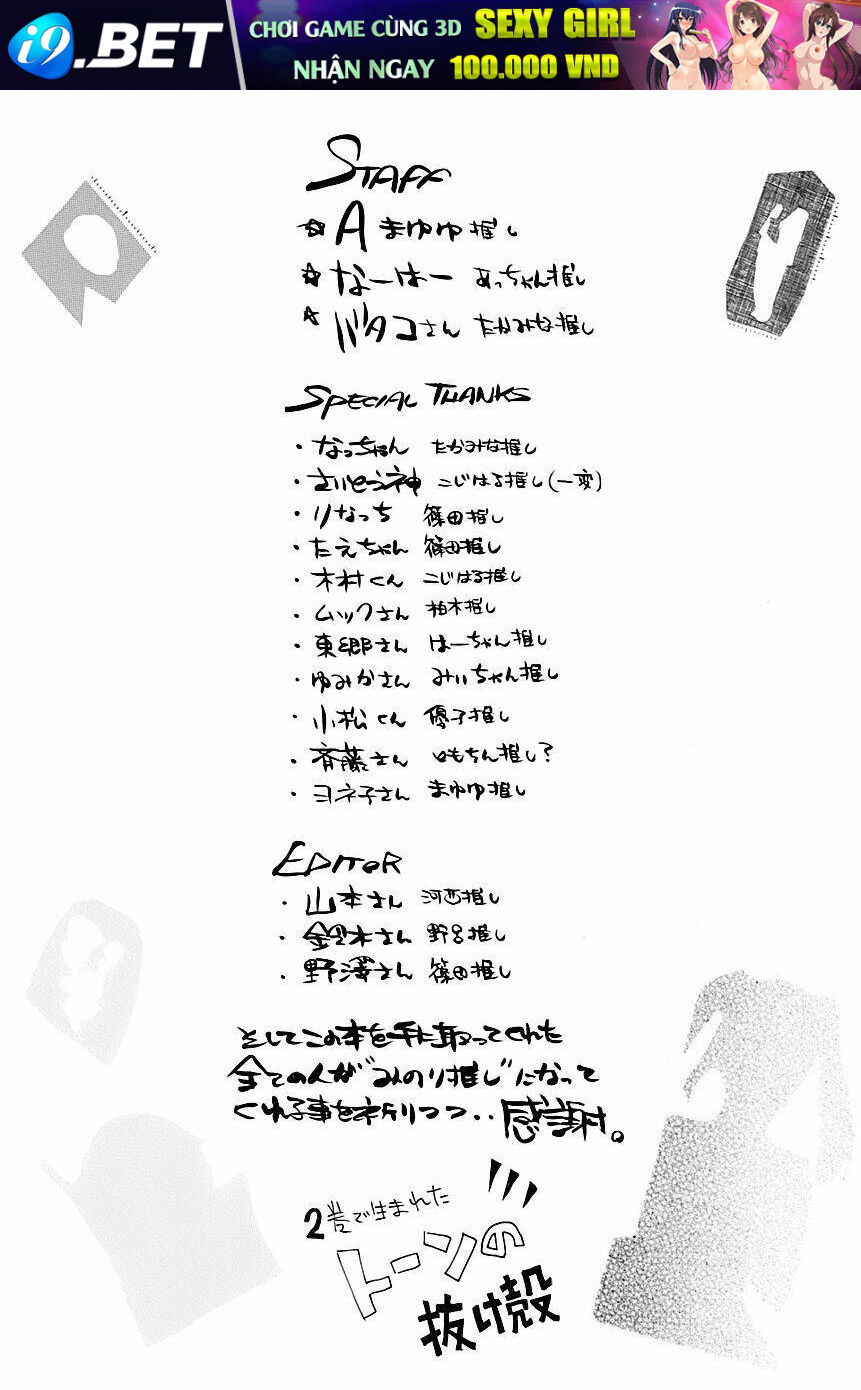 i9.BET
CHƠI GAME CÙNG 3D SEXY GIRL
NHẬN NGAY 100.000 VND
STAFF
☆A まゆゆ推し
☆なーはー あっちゃん推し
☆バタコさん たかみな推し
SPECIAL THANKS
・なっちゃん たかみな推し
・さいとう神 こじはる推し(一変)
・りなっち 篠田推し
・たえちゃん 篠田推し
・木村くん こじはる推し
・ムックさん 柏木推し
・東郷さん はーちゃん推し
・ゆみかさん みぃちゃん推し
・小松くん 優子推し
・斉藤さん ともちん推し?
・ヨネ子さん まゆゆ推し
EDITOR
・山本さん 河西推し
・鈴木さん 野呂推し
・野澤さん 篠田推し
そしてこの本を手に取ってくれた
全ての人が"みのり推し"になって
くれる事を祈りつつ・・感謝。
2巻で生まれた
トーンの
抜け殻